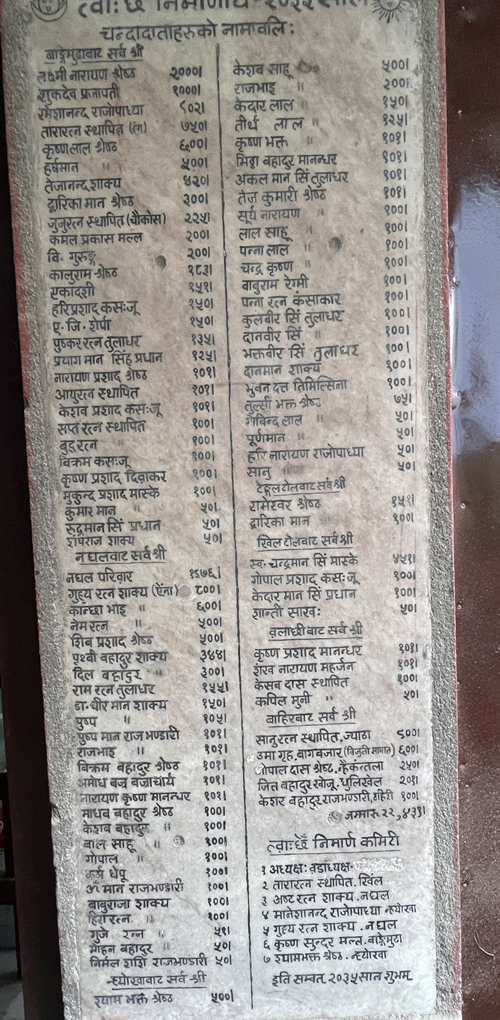 त्वाःछेँ निर्माणार्थ २०३५ साल
चन्दादाताहरुको नामावलि:
बाङेमुढाबाट सर्व श्री
लक्ष्मी नारायण श्रेष्ठ २०००।
शुकदेव प्रजापती १०००।
रमेशानन्द राजोपाध्या ८०२।
तारारत्न स्थापित (रंग) ७५०।
कृष्णलाल श्रेष्ठ ६००।
हर्षमान " ५००।
तेजानन्द शाक्य ४२०।
द्वारिका मान श्रेष्ठ ३००।
जुजुरत्न स्थापित (चौकोस) २२५।
कमल प्रकास मल्ल २००।
बि. गुरुङ्ग २००।
कालुराम श्रेष्ठ १८३।
एकादशी १५१।
हरिप्रसाद कसःजू १५०।
ए. जि. शेर्पा १५०।
पुष्कर रत्न तुलाधर १३५।
प्रयाग मान सिंह प्रधान १२५।
नारायण प्रशाद श्रेष्ठ १०१।
आयुरत्न स्थापित १०१।
केशव प्रशाद कसःजू १०१।
सप्त रत्न स्थापित १००।
बुद्द रत्न १००।
विक्रम कसःजू १००।
कृष्ण प्रशाद दिवाकर १००।
मुकुन्द प्रशाद मास्के १००।
कुमार मान " ५०।
रुद्रमान सिं प्रधान ५०।
शाक्य ५०।
नघलबाट सर्व श्री
नघल परिवार १८७६।
गुह्य रत्न शाक्य (ऐंना) ८००।
कान्छा भाइ " ६००।
नेम रत्न " ५००।
शिव प्रशाद श्रेष्ठ ५००।
पृथ्वी बहादुर शाक्य ३४४।
दिल बहादुर " ३००।
राम रत्न तुलाधर १५५।
डा. वीर मान शाक्य १५०।
पुष्प " १०५।
पुष्प मान राजभण्डारी १०१।
राजभाइ " १०१।
बिक्रम बहादुर श्रेष्ठ १०१।
अमोध बज्र बज्राचार्य १०१।
नारायण कृष्ण मानन्धर १०१।
माधव बहादुर श्रेष्ठ १००।
केशव बहादुर " १००।
बाल साहू " १००।
गोपाल " १००।
१००।
ॐ मान राजभण्डारी १००।
बाबुराजा शाक्य १००।
हिरा रत्न " १००।
गुजे रत्न " ५१।
मोहन बहादुर " ५०।
निर्मल शशि राजभण्डारी ५०।
न्ह्योखाबाट सर्व श्री
श्याम भक्त श्रेष्ठ ५००।
केशव साहू ५००।
राजभाइ " २००।
केदार लाल " १५०।
तीर्थ लाल " १२५।
कृष्ण भक्त " १०१।
मिश्र बहादुर मानन्धर १०१।
अकल मान सिं तुलाधर १०१।
तेज कुमारी श्रेष्ठ १०१।
सूर्य नारायण " १००।
लाल साहू " १००।
पन्ना लाल " १००।
चन्द्र कृष्ण " १००।
बाबुराम रेग्मी १००।
पन्ना रत्न कंसाकार १००।
कुलवीर सिं तुलाधर १००।
दानवीर सिं " १००।
भक्तवीर सिं तुलाधर १००।
दानमान शाक्य १००।
भुवन दत्त तिमिल्सिना १००।
तुल्सी भक्त श्रेष्ठ ७५।
गोविन्द लाल " ५०।
पूर्णमान " ५०।
हरि नारायण राजोपाध्या ५०।
सानु " ५०।
टेङ्गलटोलबाट सर्व श्री
रामेश्वर श्रेष्ठ १५१।
द्वारिका मान " १००।
खिलटोलबाट सर्व श्री
स्व. चन्द्रमान सिं मास्के ४५१।
गोपाल प्रशाद कसःजू १००।
केदार मान सिं प्रधान १००।
शान्ती साखः ५०।
वलाछीबाट सर्व श्री
कृष्ण प्रशाद मानन्धर १०१।
नारायण महर्जन १०१।
केसब दास स्थापित १००।
कपिल मुनी " ५०।
बाहिरबाट सर्व श्री
सानुरत्न स्थापित, ज्याठा ८००।
उमा गृह, बागबजार (विजुली सामान) ६००।
गोपाल दास श्रेष्ठ, २५०।
जित बहादुर खोजू, धुलिखेल २०१।
केशर बहादुर राजभण्डारी, १००।
जम्मा रु २२,४३९।
त्वाःछेँ निर्माण कमिटी
१ अध्यक्षः वडाध्यक्ष
२ तारारत्न स्थापित. खिंल
३ अष्ट रत्न शाक्य. नघल
४ मानेशानन्द राजोपाध्या न्ह्योखा
५ गुह्य रत्न शाक्य. नघल
६ कृष्ण सुन्दर मल्ल. बाङेमुढा
७ श्यामभक्त श्रेष्ठ. न्ह्योखा
इति सम्वत् २०३५ साल शुभम्